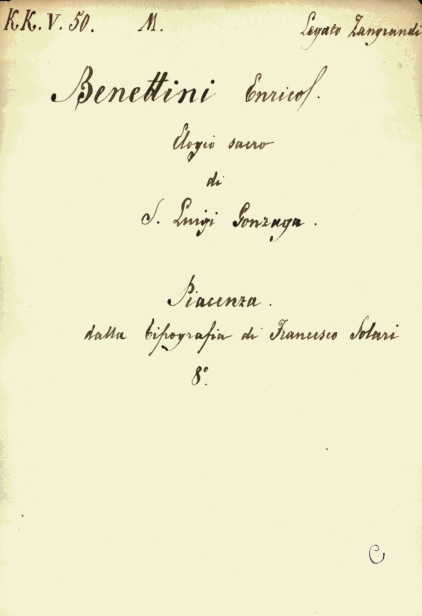 KK. V. 50. M. Legato Zangrandi
Benettini Enrico.
Elogio sacro
di
S. Luigi Gonzaga.
Piacenza.
dalla tipografia di Francesco Solari
8°.
C